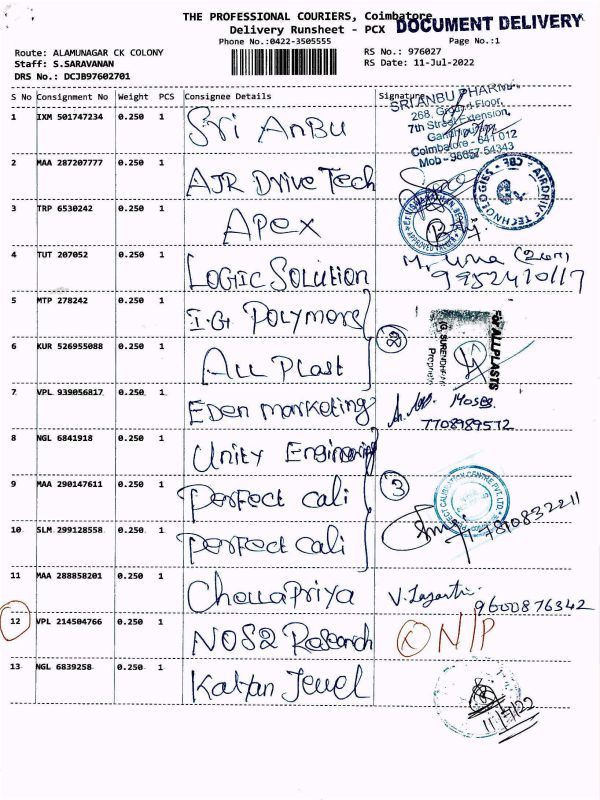 THE PROFESSIONAL COURIERS, Coimbatore
DOCUMENT DELIVERY
Delivery Runsheet - PCX
Phone No.:0422-3505555
Page No.:1
Route: ALAMUNAGAR CK COLONY
RS No.: 976027
Staff: S.SARAVANAN
RS Date: 11-Jul-2022
DRS No.: DCJB97602701
S No Consignment No Weight PCS Consignee Details Signature
1 IXM 501747234 0.250 1 Sri Anbu
SRI ANBU PHARMA
268, Ground Floor,
7th Street Extension,
Coimbatore - 641 012
Mob - 98657 54343
2 MAA 287207777 0.250 1 AJR Drive Tech
AIRDRIVE TECHNOLOGIES - CBE
3 TRP 6530242 0.250 1 Apex
4 TUT 207052 0.250 1 LOGIC SOLUTION
9952470117
5 MTP 278242 0.250 1 I.G Polymers
6 KUR 526955088 0.250 1 ALL Plast
For ALLPLASTS
7 VPL 939056817 0.250 1 Eden marketing
Moses
7708989572
8 NGL 6841918 0.250 1 Unity Engineering
9 MAA 290147611 0.250 1 Perfect cali
3
10 SLM 299128558 0.250 1 Perfect cali
7810832211
11 MAA 288858201 0.250 1 Chellapriya
9600876342
12 VPL 214504766 0.250 1 NOS2 Research
N/P
13 NGL 6839258 0.250 1 Kalyan Jewel
11/7/22